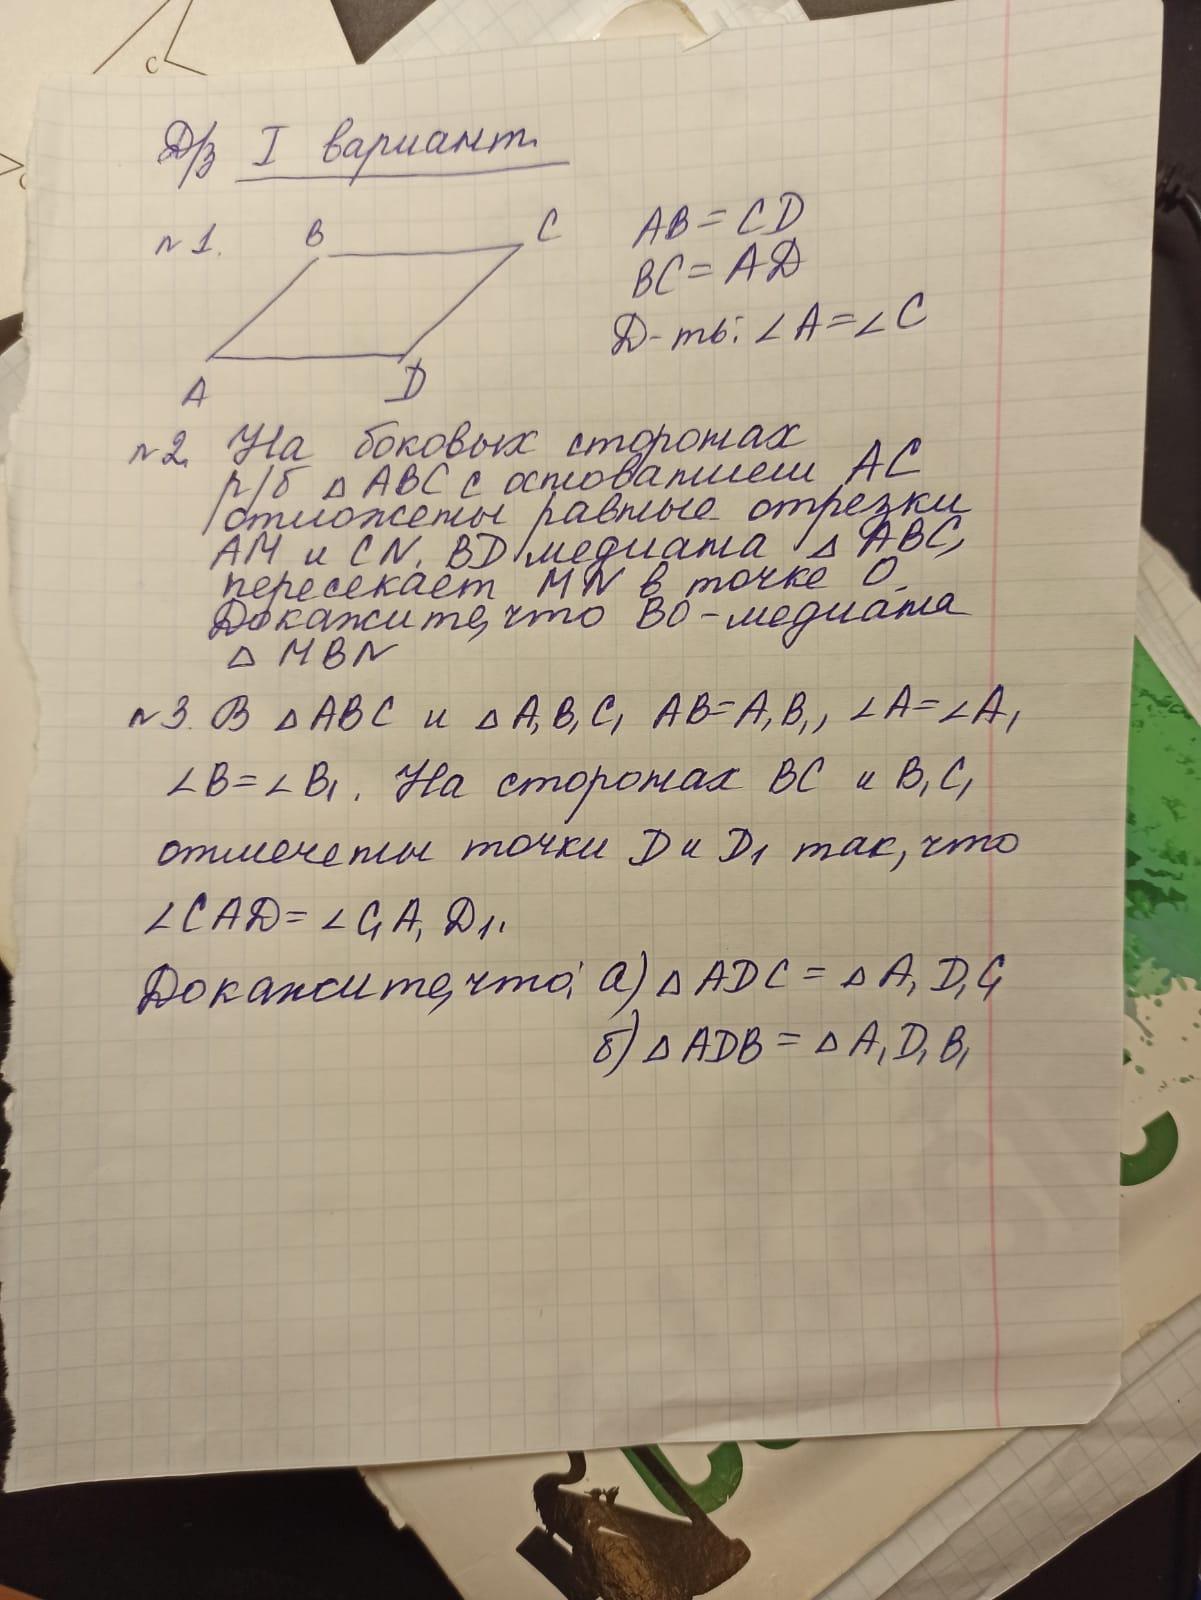 Д/з I вариант.
№1.
B
C
A
D
AB = CD
BC = AD
Д-ть: ∠A = ∠C
№2. На боковых сторонах
р/б △ ABC с основанием AC
отложены равные отрезки
AM и CN. BD медиана △ ABC,
пересекает MN в точке O.
Докажите, что BO - медиана
△ MBN
№3. В △ ABC и △ A₁B₁C₁ AB = A₁B₁, ∠A = ∠A₁
∠B = ∠B₁. На сторонах BC и B₁C₁
отмечены точки D и D₁ так, что
∠CAD = ∠C₁A₁D₁.
Докажите, что: а) △ ADC = △ A₁D₁C₁
б) △ ADB = △ A₁D₁B₁
C